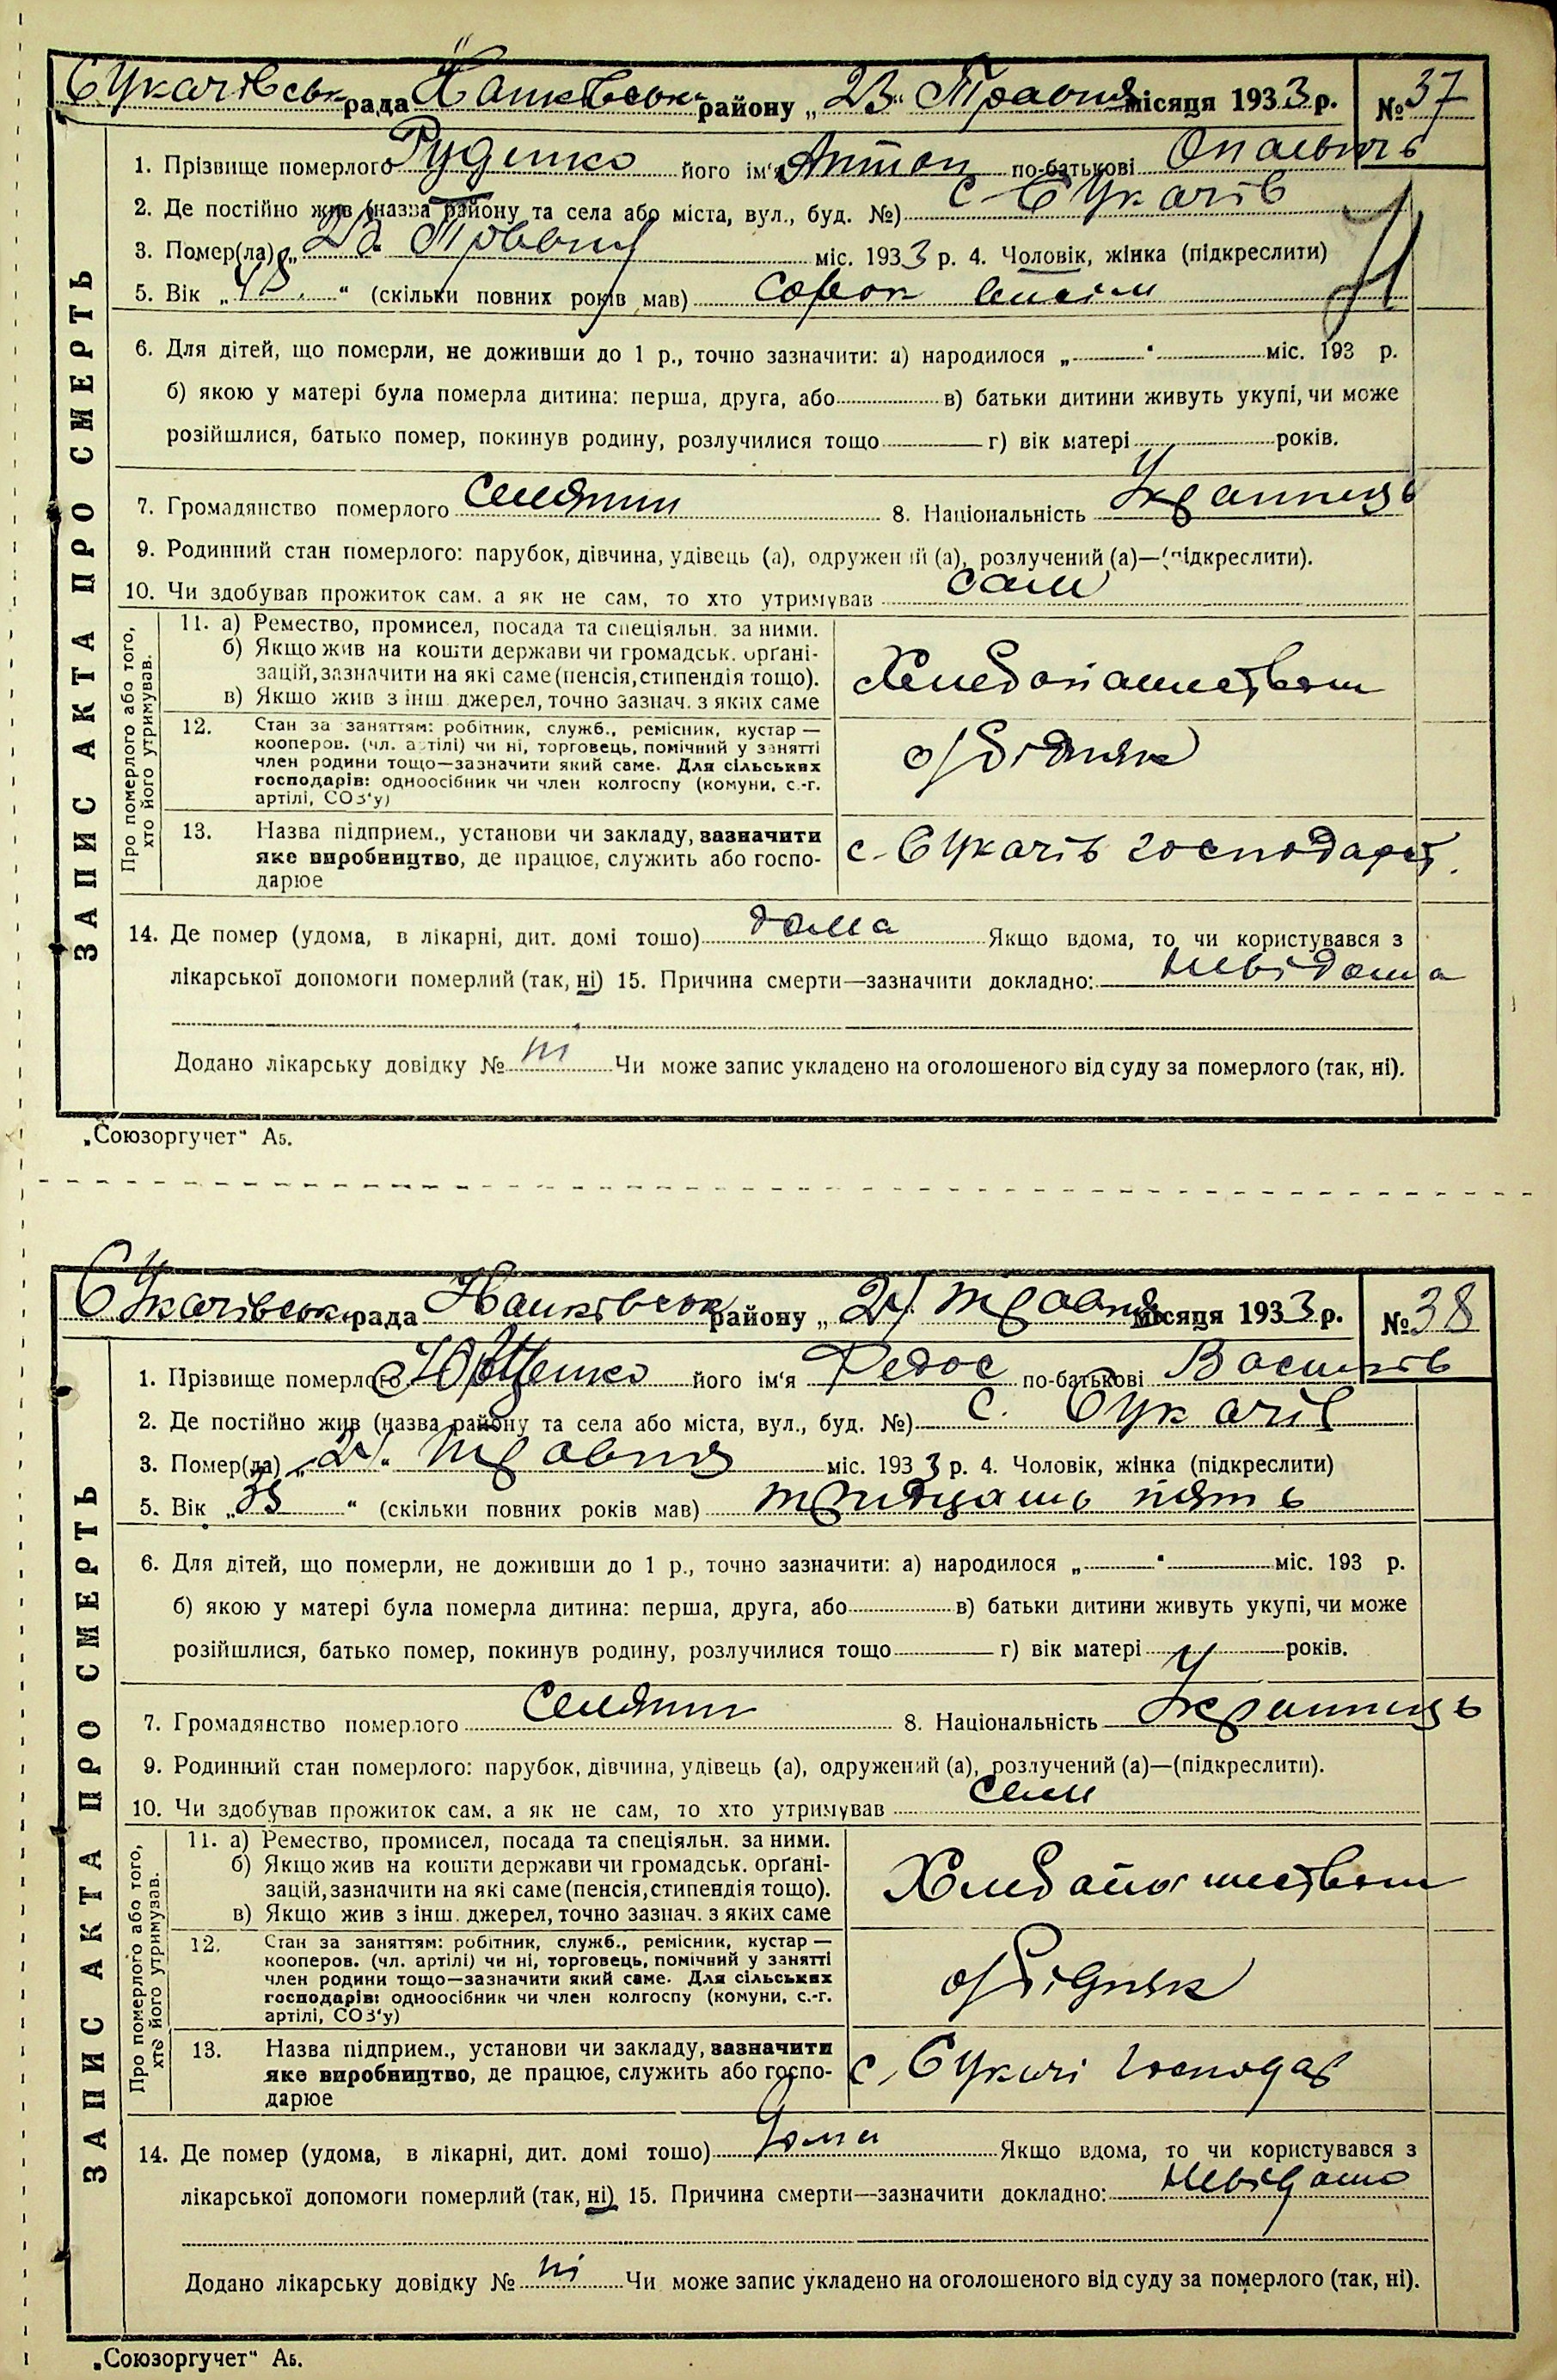 Сукачівськ рада Іванківськ району „23“ Травня місяця 1933 р. № 37
ЗАПИС АКТА ПРО СМЕРТЬ
1. Прізвище померлого Руденко його ім'я Антон по-батькові
2. Де постійно жив (назва району та села або міста, вул., буд. №) с. Сукачів
3. Помер(ла) „ Травня міс. 1933 р. 4. Чоловік, жінка (підкреслити)
5. Вік „48“ (скільки повних років мав) сорок вісім
6. Для дітей, що померли, не доживши до 1 р., точно зазначити: а) народилося „ “ міс. 193 р.
б) якою у матері була померла дитина: перша, друга, або в) батьки дитини живуть укупі, чи може
розійшлися, батько помер, покинув родину, розлучилися тощо г) вік матері років.
7. Громадянство померлого селянин 8. Національність Українець
9. Родинний стан померлого: парубок, дівчина, удівець (а), одружений (а), розлучений (а)—(підкреслити).
10. Чи здобував прожиток сам, а як не сам, то хто утримував сам
Про померлого або того,
хто його утримував.
11. а) Ремество, промисел, посада та спеціяльн. за ними.
б) Якщо жив на кошти держави чи громадськ. орґані-
зацій, зазначити на які саме (пенсія, стипендія тощо).
в) Якщо жив з інш. джерел, точно зазнач. з яких саме
Хлебопашеством
12. Стан за заняттям: робітник, служб., ремісник, кустар —
кооперов. (чл. артілі) чи ні, торговець, помічний у занятті
член родини тощо—зазначити який саме. Для сільських
господарів: одноосібник чи член колгоспу (комуни, с.-г.
артілі, СОЗ'у)
о/бідняк
13. Назва підприєм., установи чи закладу, зазначити
яке виробництво, де працює, служить або госпо-
дарюе
с. Сукачів господарст.
14. Де помер (удома, в лікарні, дит. домі тошо) дома Якщо вдома, то чи користувався з
лікарської допомоги померлий (так, ні) 15. Причина смерти—зазначити докладно: невідома
Додано лікарську довідку № ні Чи може запис укладено на оголошеного від суду за померлого (так, ні).
„Союзоргучет“ А5.
Сукачівськ рада Іванківськ району „24“ травня місяця 1933 р. № 38
ЗАПИС АКТА ПРО СМЕРТЬ
1. Прізвище померлого Ющенко його ім'я Федос по-батькові Васильів
2. Де постійно жив (назва району та села або міста, вул., буд. №) с. Сукачів
3. Помер(ла) „24“ травня міс. 1933 р. 4. Чоловік, жінка (підкреслити)
5. Вік „35“ (скільки повних років мав) тридцать пять
6. Для дітей, що померли, не доживши до 1 р., точно зазначити: а) народилося „ “ міс. 193 р.
б) якою у матері була померла дитина: перша, друга, або в) батьки дитини живуть укупі, чи може
розійшлися, батько помер, покинув родину, розлучилися тощо г) вік матері років.
7. Громадянство померлого селянин 8. Національність Українець
9. Родинний стан померлого: парубок, дівчина, удівець (а), одружений (а), розлучений (а)—(підкреслити).
10. Чи здобував прожиток сам, а як не сам, то хто утримував сам
Про померлого або того,
хто його утримував.
11. а) Ремество, промисел, посада та спеціяльн. за ними.
б) Якщо жив на кошти держави чи громадськ. орґані-
зацій, зазначити на які саме (пенсія, стипендія тощо).
в) Якщо жив з інш. джерел, точно зазнач. з яких саме
Хлебопашеством
12. Стан за заняттям: робітник, служб., ремісник, кустар —
кооперов. (чл. артілі) чи ні, торговець, помічний у занятті
член родини тощо—зазначити який саме. Для сільських
господарів: одноосібник чи член колгоспу (комуни, с.-г.
артілі, СОЗ'у)
о/бідняк
13. Назва підприєм., установи чи закладу, зазначити
яке виробництво, де працює, служить або госпо-
дарюе
с. Сукачі господар
14. Де помер (удома, в лікарні, дит. домі тошо) дома Якщо вдома, то чи користувався з
лікарської допомоги померлий (так, ні) 15. Причина смерти—зазначити докладно: невідомо
Додано лікарську довідку № ні Чи може запис укладено на оголошеного від суду за померлого (так, ні).
„Союзоргучет“ А5.